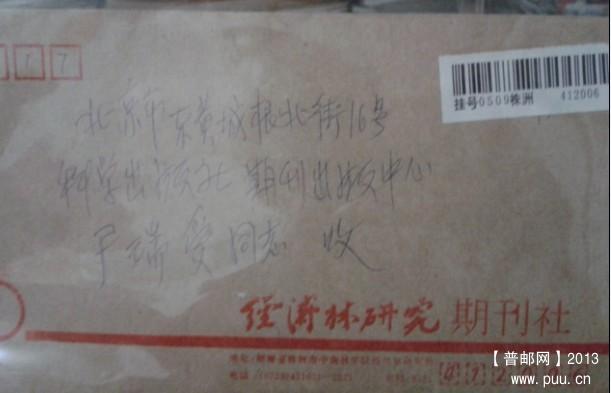 7 7
挂号0509株洲 412006
北京市东黄城根北街16号
科学出版社 期刊出版中心
于瑞雯同志 收
经济林研究 期刊社
【普邮网】2013
www.puu.cn